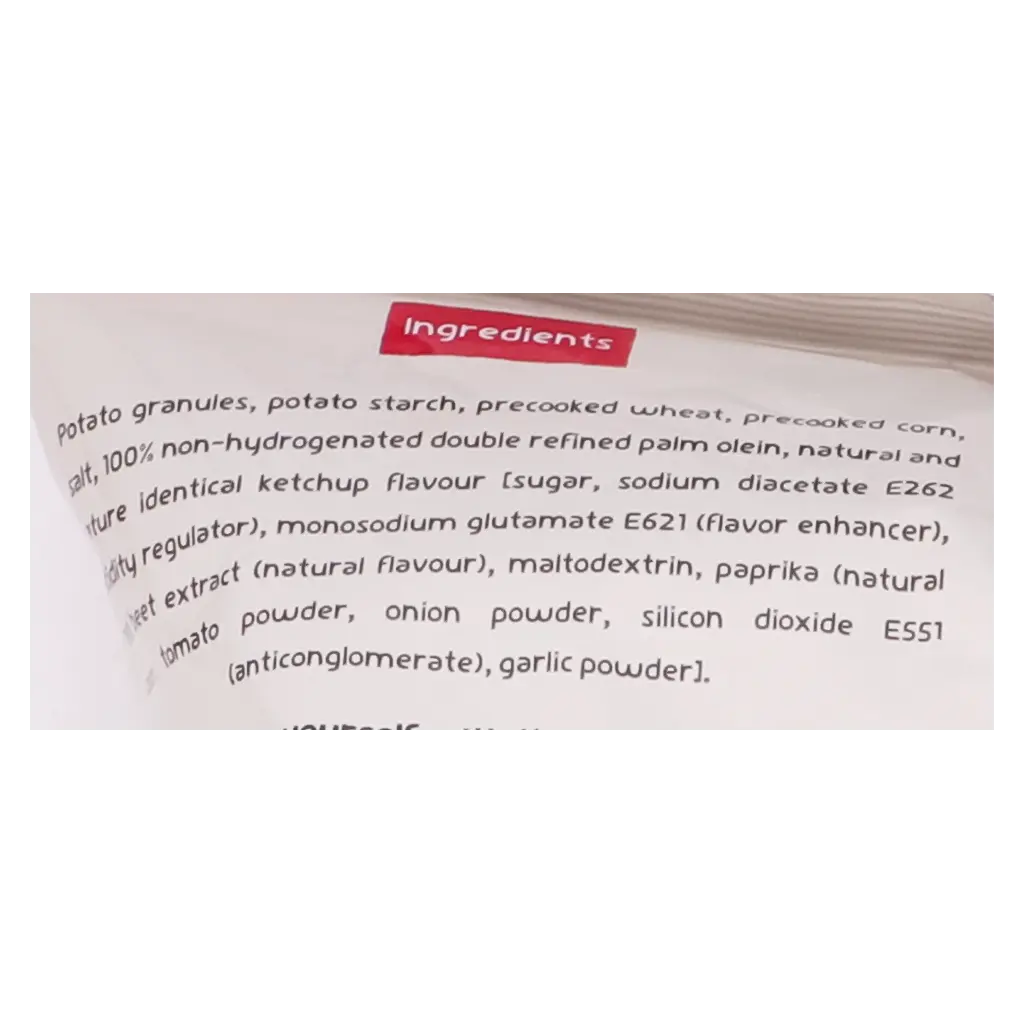 Ingredients
Potato granules, potato starch, precooked wheat, precooked corn,
salt, 100% non-hydrogenated double refined palm olein, natural and
identical ketchup flavour [sugar, sodium diacetate E262
regulator), monosodium glutamate E621 (flavor enhancer),
beet extract (natural flavour), maltodextrin, paprika (natural
tomato powder, onion powder, silicon dioxide E551
(anticonglomerate), garlic powder].